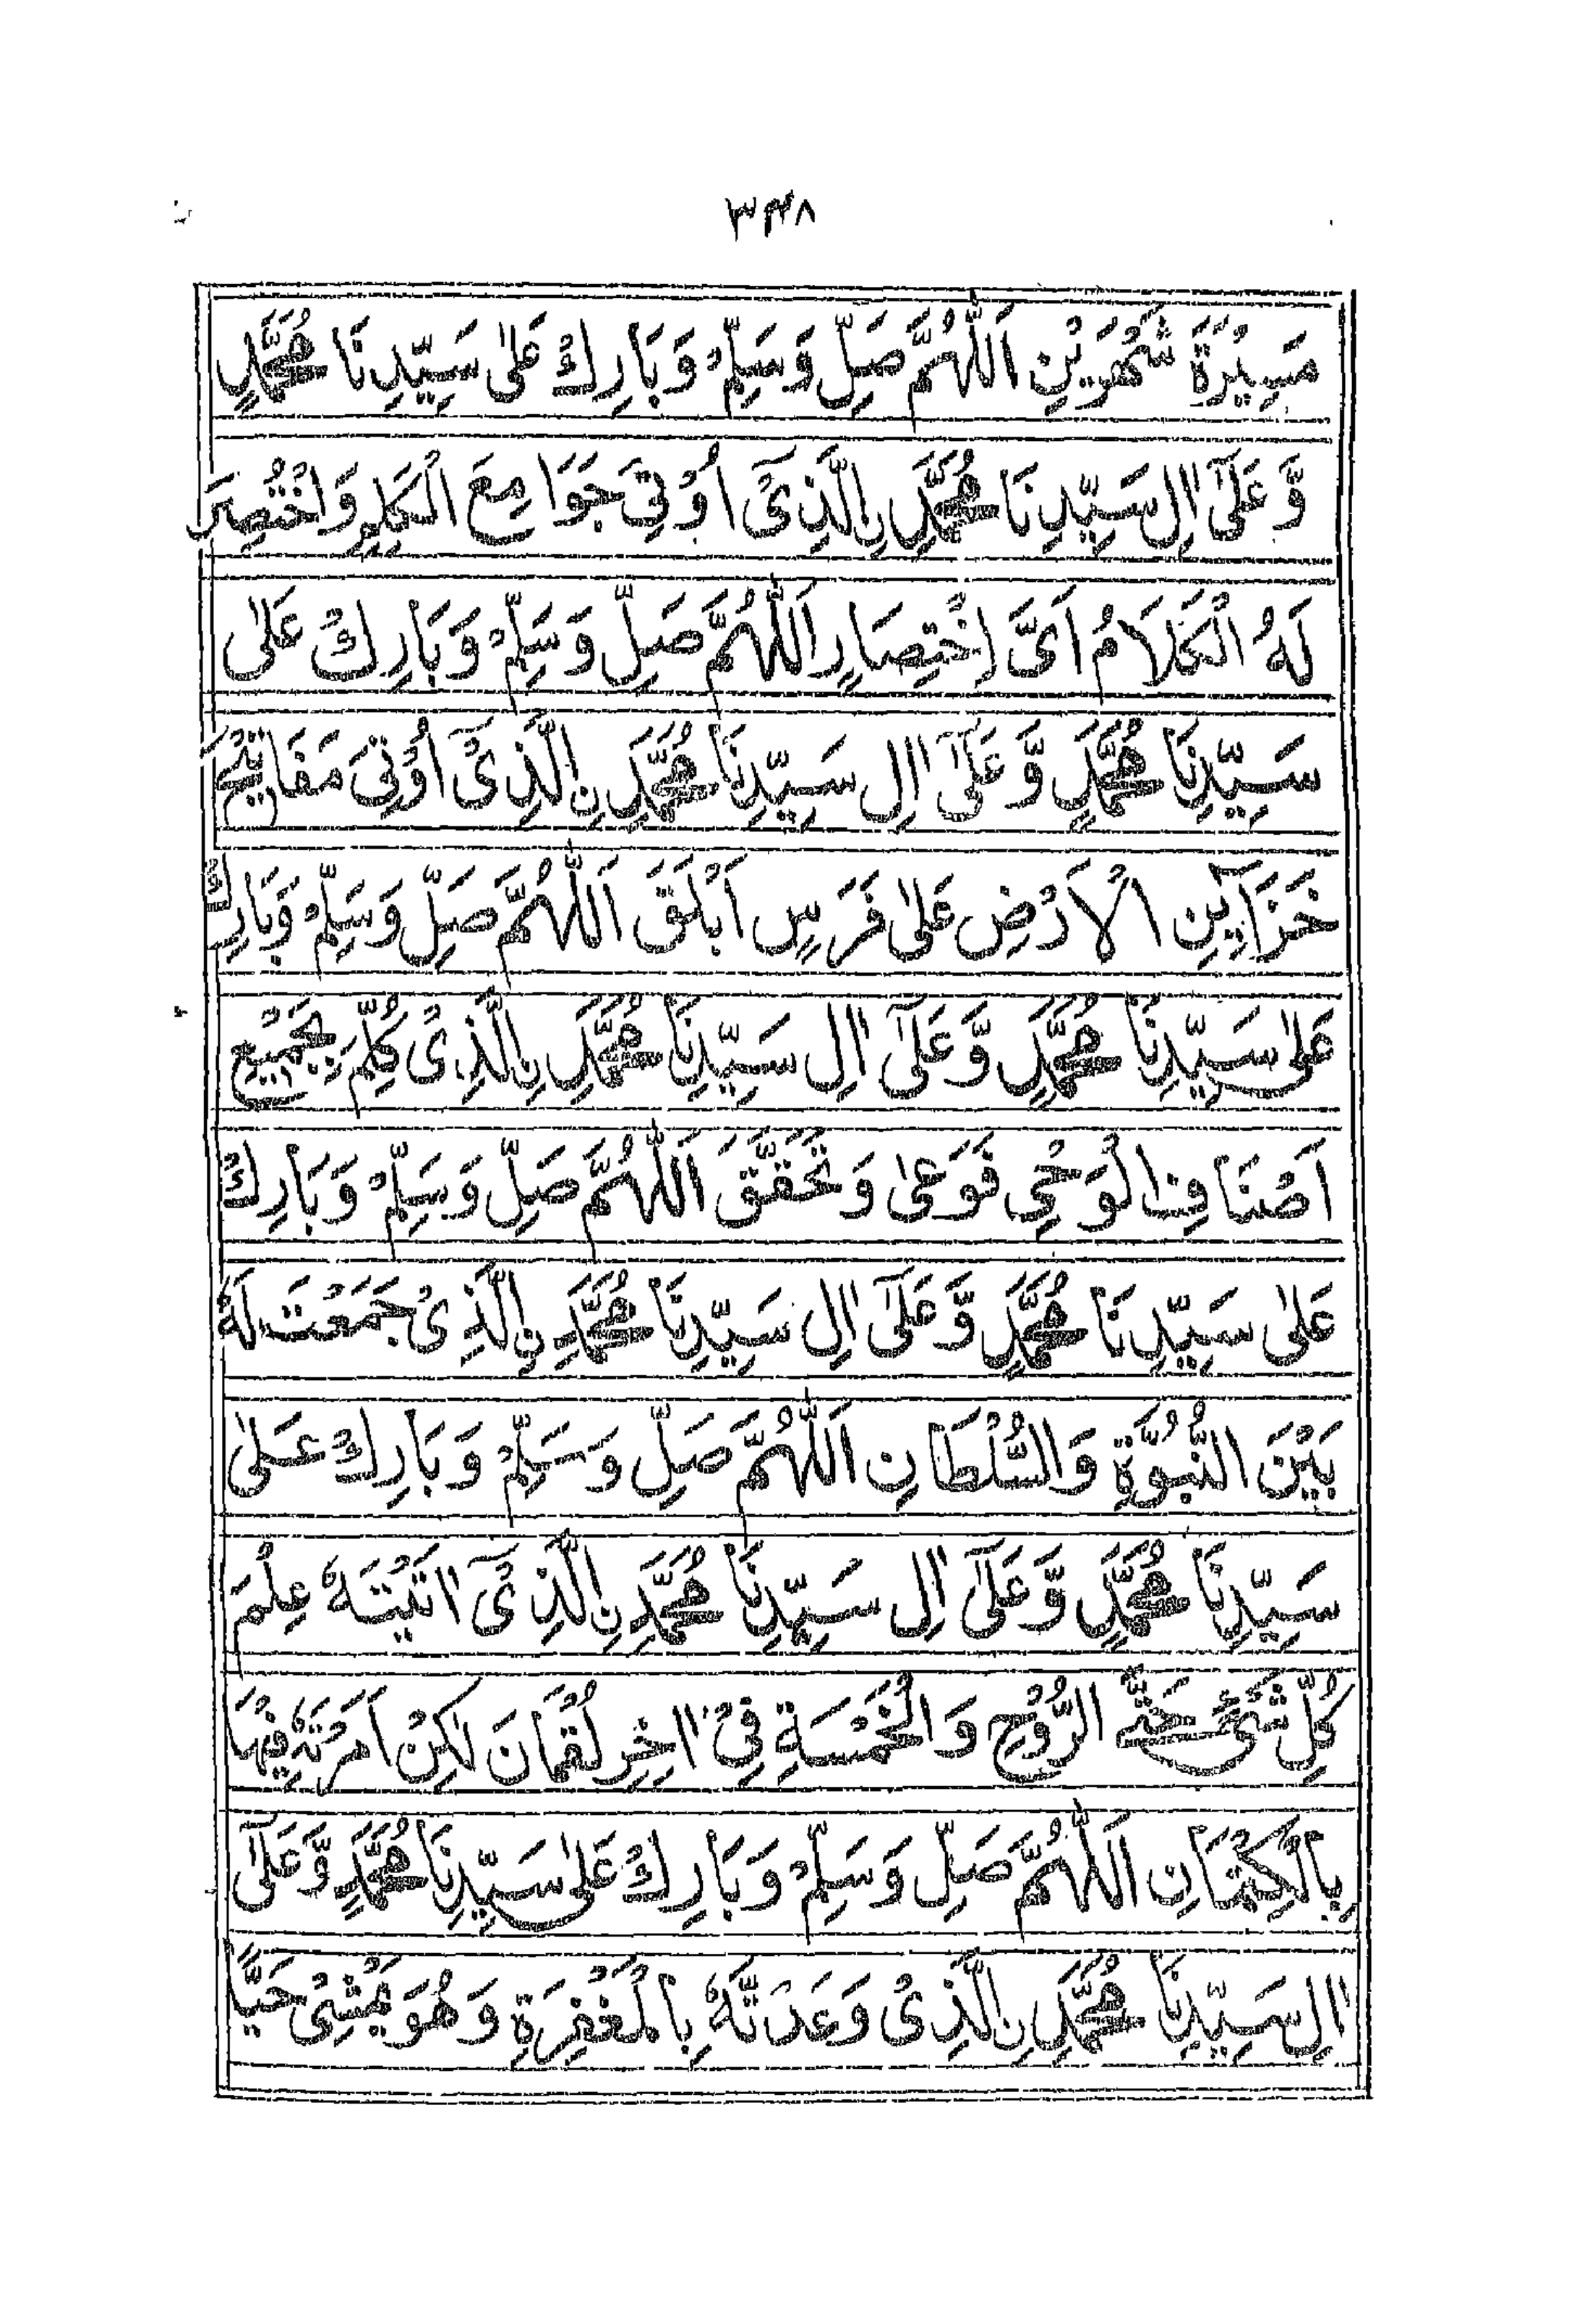 ۳۴۸
مَسِيْرَةَ شَهْرَيْنِ اَللّٰهُمَّ صَلِّ وَسَلِّمْ وَبَارِكْ عَلٰى سَيِّدِنَا مُحَمَّدٍ
وَّعَلٰٓى اٰلِ سَيِّدِنَا مُحَمَّدِ نِالَّذِىْٓ اُوْتِىَ جَوَامِعَ الْكَلِمِ وَاخْتُصِرَ
لَهُ الْكَلَامُ اَىَّ اِخْتِصَارٍ اَللّٰهُمَّ صَلِّ وَسَلِّمْ وَبَارِكْ عَلٰى
سَيِّدِنَا مُحَمَّدٍ وَّعَلٰٓى اٰلِ سَيِّدِنَا مُحَمَّدِ نِالَّذِىْٓ اُوْتِىَ مَفَاتِيْحَ
خَزَآيِنِ الْاَرْضِ عَلٰى فَرَسٍ اَبْلَقَ اَللّٰهُمَّ صَلِّ وَسَلِّمْ وَبَارِكْ
عَلٰى سَيِّدِنَا مُحَمَّدٍ وَّعَلٰٓى اٰلِ سَيِّدِنَا مُحَمَّدِ نِالَّذِىْ كُلِّمَ بِجَمِيْعِ
اَصْنَافِ الْوَحْيِ فَوَعٰى وَتَحَقَّقَ اَللّٰهُمَّ صَلِّ وَسَلِّمْ وَبَارِكْ
عَلٰى سَيِّدِنَا مُحَمَّدٍ وَّعَلٰٓى اٰلِ سَيِّدِنَا مُحَمَّدِ نِالَّذِىْ جَمَعْتَ لَهٗ
بَيْنَ النُّبُوَّةِ وَالسُّلْطَانِ اَللّٰهُمَّ صَلِّ وَسَلِّمْ وَبَارِكْ عَلٰى
سَيِّدِنَا مُحَمَّدٍ وَّعَلٰٓى اٰلِ سَيِّدِنَا مُحَمَّدِ نِالَّذِىْٓ اٰتَيْتَهٗ عِلْمَ
كُلِّ شَىْءٍ حَتَّى الرُّوْحِ وَالْخَمْسَةِ فِىْ اٰخِرِ لُقْمَانَ لٰكِنْ اَمَرْتَهٗ فِيْهَا
بِالْكِتْمَانِ اَللّٰهُمَّ صَلِّ وَسَلِّمْ وَبَارِكْ عَلٰى سَيِّدِنَا مُحَمَّدٍ وَّعَلٰٓى
اٰلِ سَيِّدِنَا مُحَمَّدِ نِالَّذِىْ وَعَدْتَّهٗ بِالْمَغْفِرَةِ وَهُوَ يَمْشِىْ حَيًّا